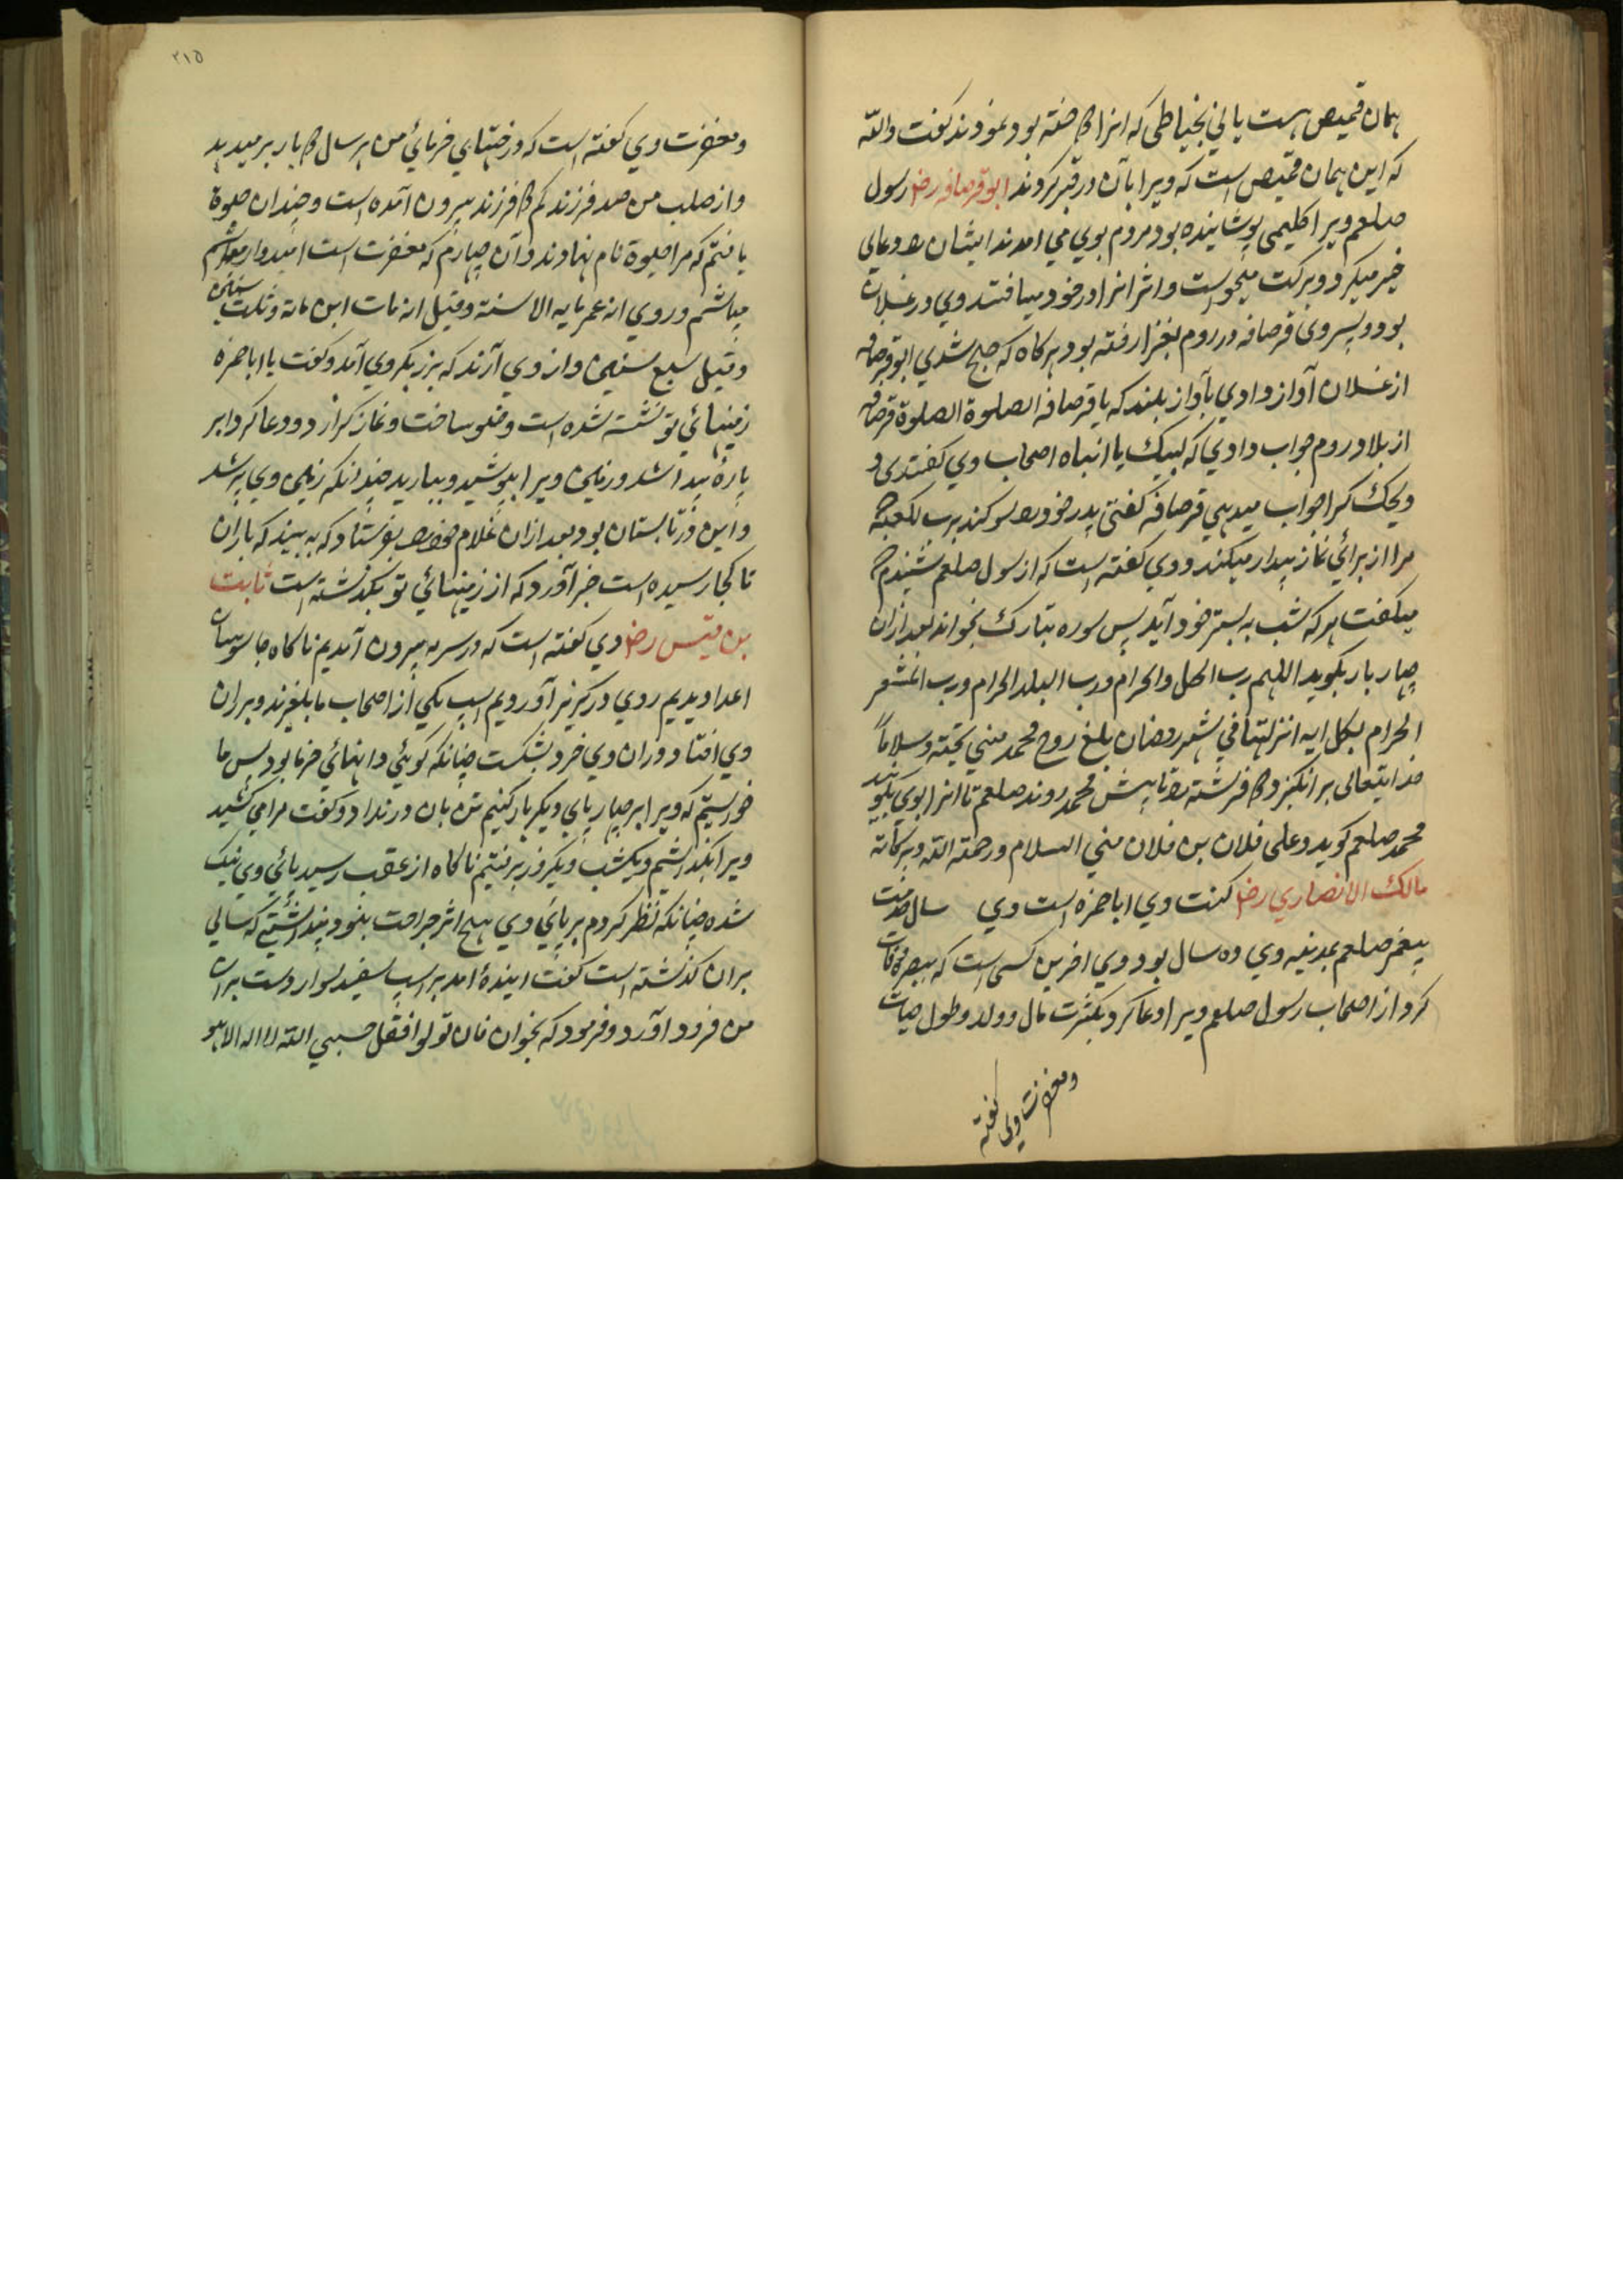 همان قمیص هست یا نی بخیاطی که انرا دوخته بود نمودند گفت والله
که این همان قمیص است که ویرا بآن در قبر کردند ابو قرصافه رض رسول
صلعم ویرا کلیمی پوشانیده بود مردم بوی می امدند ایشان را دعای
خیر میکرد و برکت میخواست و اثر انرا در خود میافتند وی در عسقلان
بود و پسر وی قرصافه در روم بغزا رفته بود هرکاه که صبح شدی ابو قرصافه
از عسقلان آواز دادی بآواز بلند که یا قرصافه الصلوة الصلوة قرصافه
از بلاد روم جواب دادی که لبیک یا ابتاه اصحاب وی گفتندی
ویحک کرا جواب میدهی قرصافه گفتی پدر خود را سوکند برب الکعبه
مرا از برائی نماز بیدار میکند و وی گفته است که از رسول صلعم شنیدم
میگفت هر که شب به بستر خود آید پس سوره تبارک بخواند بعد ازان
چهار بار بگوید اللهم رب الحل والحرام ورب البلد الحرام ورب المشعر
الحرام بکل ایه انزلتها فی شهر رمضان بلغ روح محمد منی تحیته وسلاماً
خدایتعالی برانگیزد دو فرشته را تا پیش محمد روند صلعم تا انرا بوی بگویند
محمد صلعم گوید وعلی فلان بن فلان منی السلام ورحمته الله وبرکاته
مالک الانصاری رض کنت وی اباحمزه است وی سال خدمت
پیغمبر صلعم بمدینه وی ده سال بود وی اخرین کسی است که ببصره وفات
کرد از اصحاب رسول صلعم ویرا دعا کرد بکثرت مال وولد وطول حیات
ومغفرت وی گفته
٢١٥
ومغفرت وی گفته است که درختهای خرمائی من هر سال دو بار بر میدهد
و از صلب من صد فرزند کم دو فرزند بیرون آمده است و چندان حیوة
یافتم که مرا حیوة نام نهادند و آن چهارم که مغفرت است امیدوار
میباشم وروی انه عمر مایه الا سنة وقیل انه مات ابن مائة وثلث سنین
وقیل سبع سنین و از وی آرند که برزیگر وی آمد و گفت یا اباحمزه
زمینهائی تو تشنه شده است وضو ساخت و نماز گزارد و دعا کرد ابر
پارهٔ پیدا شد و زمین ویرا بپوشید و ببارید چندانکه زمین وی پر شد
و این در تابستان بود بعد ازان غلام خود را بفرستاد که به بیند که باران
تا کجا رسیده است خبر آورد که از زمینهائی تو نگذشته است ثابت
بن قیس رض وی گفته است که در سریه بیرون آمدیم ناکاه جاسوسان
اعدا دیدیم روی در گریز آوردیم اسپ یکی از اصحاب ما بلغزید و بر ران
وی افتاد و ران وی خرد بشکست چنانکه گوئی دانهائی خرما بود پس ما
خواستیم که ویرا بر چهارپای دیگر بار کنیم تن بان در نداد و گفت مرا می کشید
ویرا بگذاشتیم و یکشب و یکروز برفتیم ناکاه از عقب رسید پائی وی نیک
شده چنانکه نظر کردم بر پائی وی هیچ اثر جراحت نبود پنداشتی که سالی
بران گذشته است گفت ایندهٔ امد بر اسپ سفید سوار دست بران
من فرود اورد و فرمود که بخوان فان تولوا فقل حسبی الله لا اله الا هو